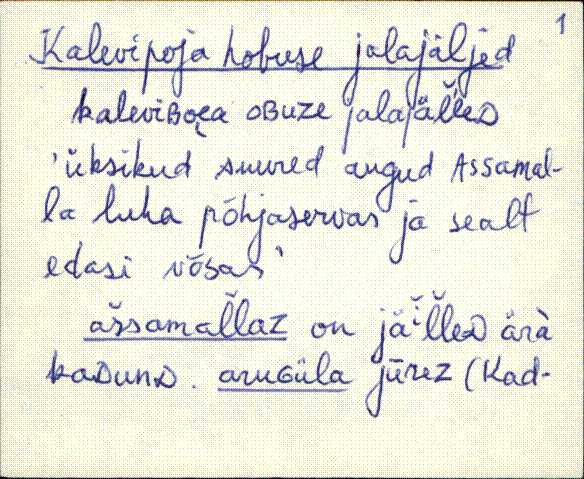 1
Kalevipoja hobuse jalajäljed
kaleviʙoe̯a oʙuᴢe jalajäl̆l̆eᴅ
'üksikud suured augud Assamal-
la luha põhjaservas ja sealt
edasi võsas'
assamal̆l̆aᴢ on jäĭl̆l̆eᴅ ärà
kaᴅunᴅ. aruɢüla jūreᴢ (Kad-